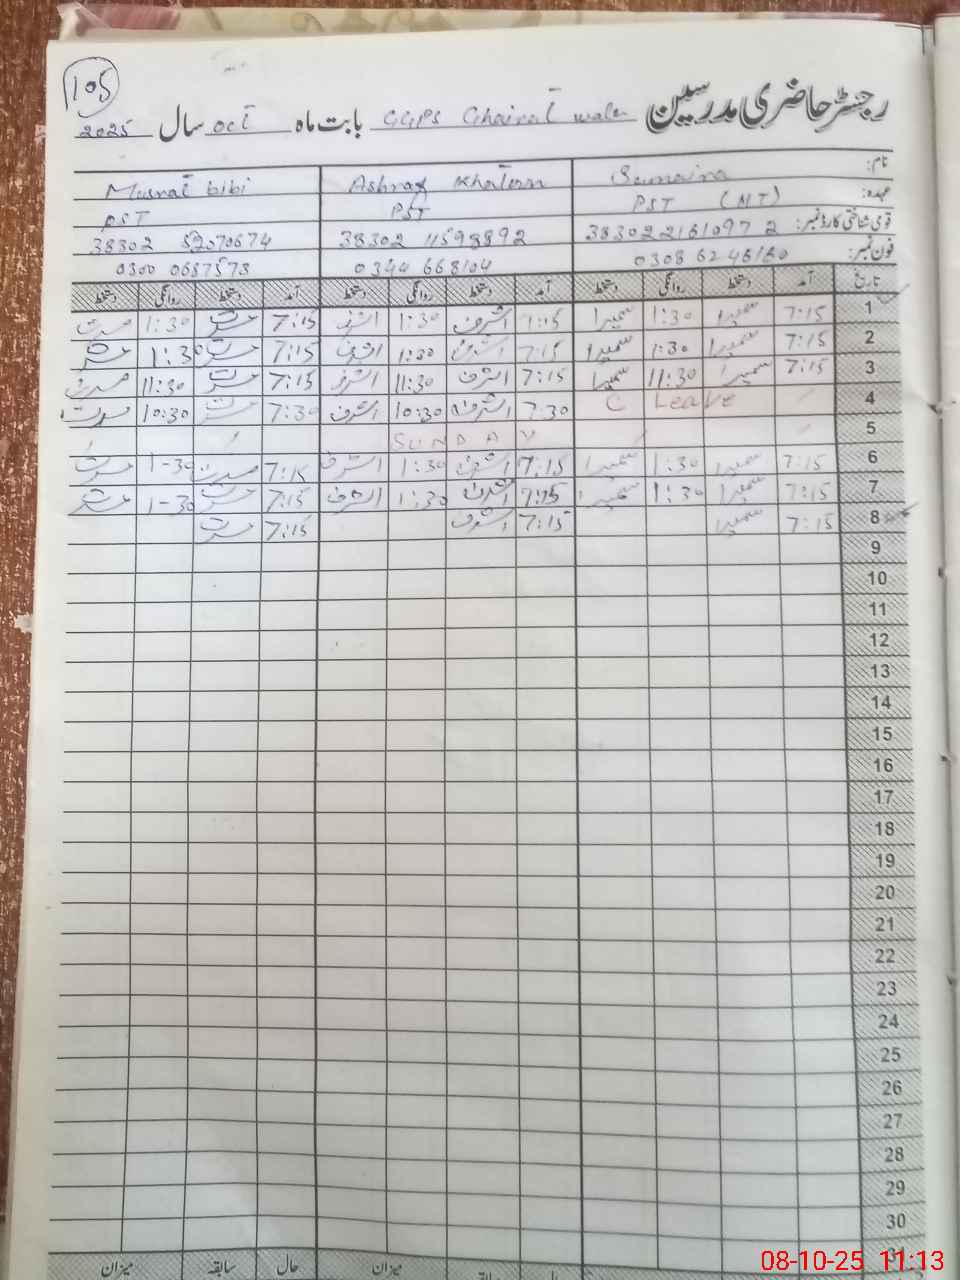 105
رجسٹر حاضری مدرسین GGPS Ghairat wala بابت ماہ oct سال 2025
نام: Sumaira Ashraf Khatoon Musrat bibi
عہدہ: PST (HT) PST PST
قومی شناختی کارڈ نمبر: 38302 11598892
فون نمبر: 0308 6246160 0344 668104 0300 0687573
تاریخ آمد دستخط روانگی دستخط آمد دستخط روانگی دستخط آمد دستخط روانگی دستخط
1 7:15 سمیرا 1:30 سمیرا 7:15 اشرف 1:30 اشرف 7:15 مسرت 1:30 مسرت
2 7:15 سمیرا 1:30 سمیرا 7:15 اشرف 1:30 اشرف 7:15 مسرت 1:30 مسرت
3 7:15 سمیرا 11:30 سمیرا 7:15 اشرف 11:30 اشرف 7:15 مسرت 11:30 مسرت
4 C Leave 7:30 اشرف 10:30 اشرف 7:30 مسرت 10:30 مسرت
5 SUNDAY
6 7:15 سمیرا 1:30 سمیرا 7:15 اشرف 1:30 اشرف 7:15 مسرت 1-30 مسرت
7 7:15 سمیرا 1:30 سمیرا 7:15 اشرف 1:30 اشرف 7:15 مسرت 1-30 مسرت
8 7:15 سمیرا 7:15 اشرف 7:15 مسرت
9
10
11
12
13
14
15
16
17
18
19
20
21
22
23
24
25
26
27
28
29
30
31
میزان حال سابقہ میزان
08-10-25 11:13